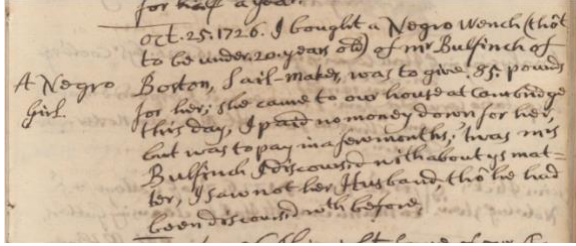 for half a year.
Oct. 25. 1726. I bought a Negro Wench (tho't
to be under 20 years old) of mr Bulfinch of
A Negro Girl.
Boston, Sail-maker, was to give 85. pounds
for her; she came to our house at Cambridge
this day, I paid no money down for her,
but was to pay in a few months; 'twas mrs
Bulfinch I discours'd with about ys mat-
ter, I saw not her Husband, tho' he had
been discours'd wth before,